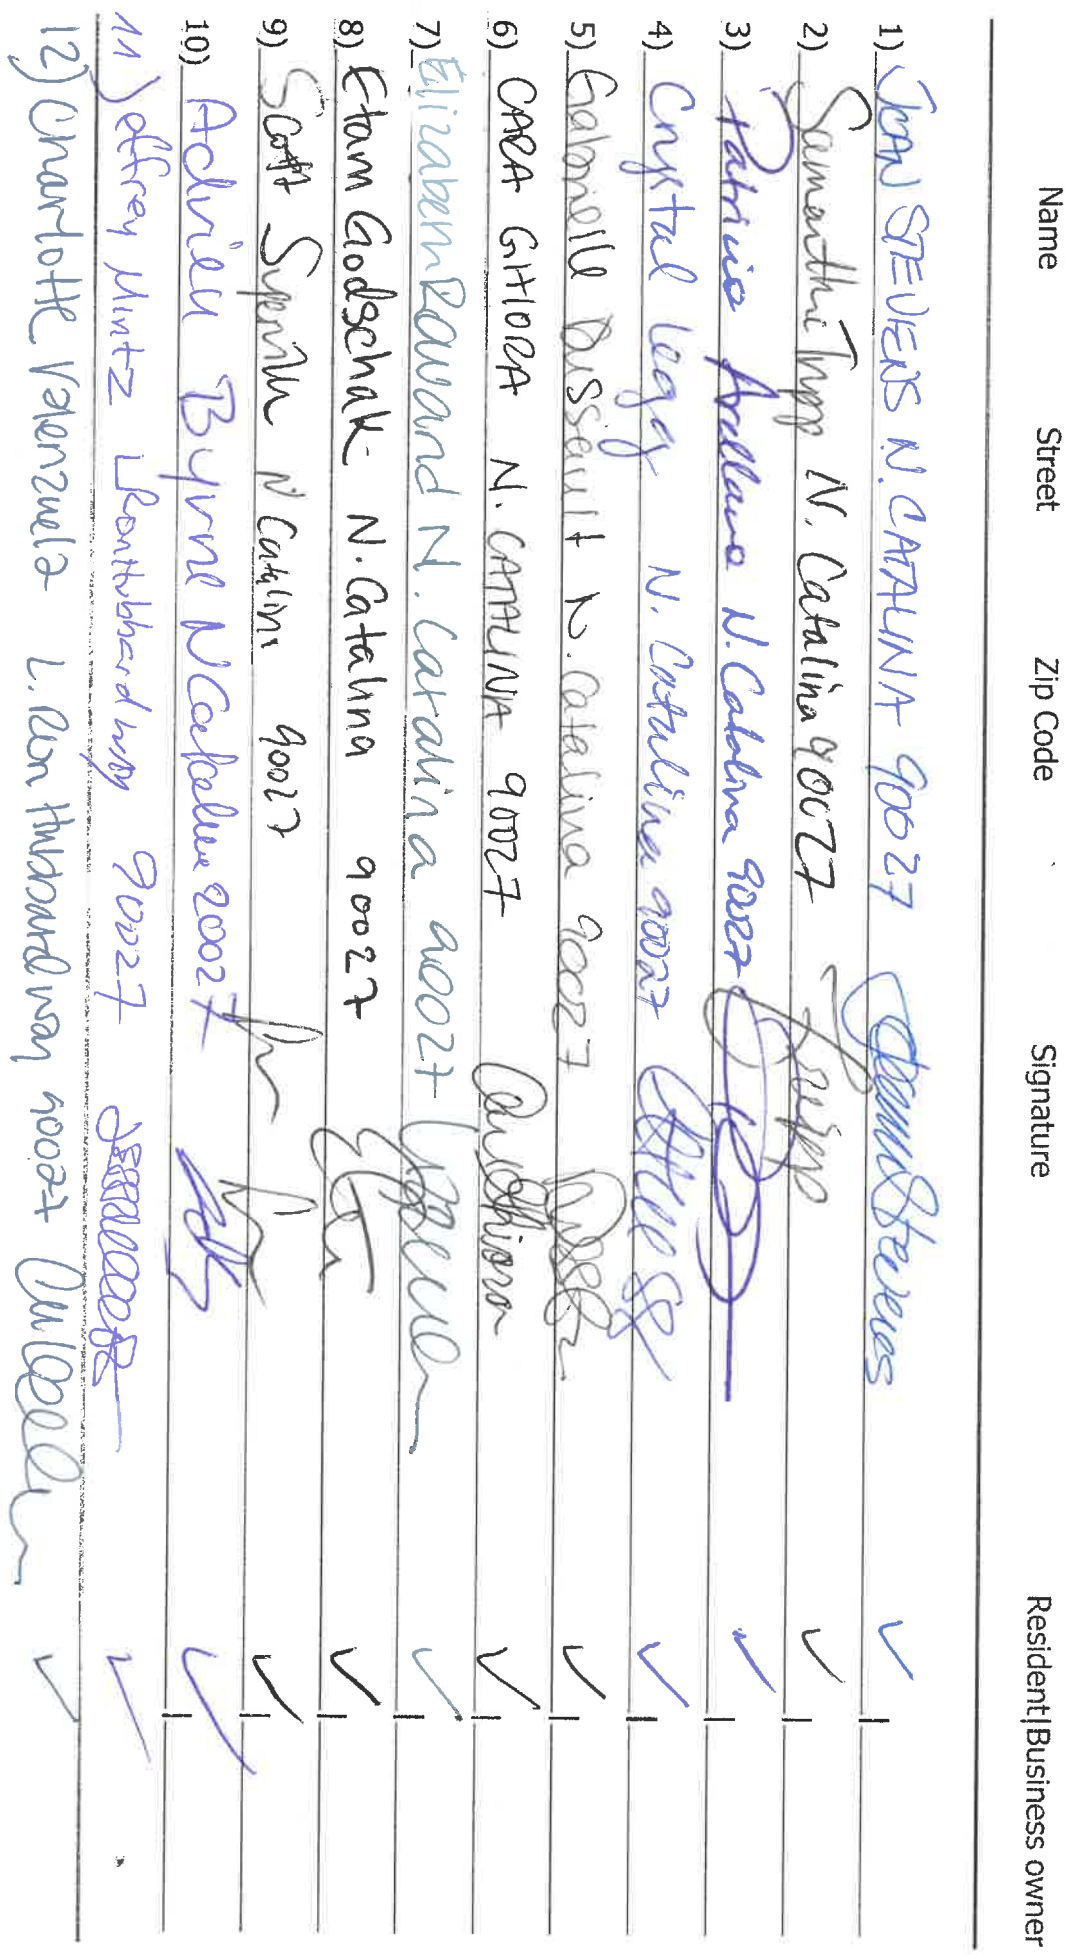 Name Street Zip Code Signature Resident|Business owner
1) JEAN STEVENS N. CATALINA 90027
2) Samantha Tripp N. Catalina 90027
3) Patricio Arellano N. Catalina 90027
4) Crystal Legg N. Catalina 90027
5) Gabrielle Dussault N. Catalina 90027
6) CARA GHIORA N. CATALINA 90027
7) Elizabeth Rouward N. Catalina 90027
8) Etam Godschalk N. Catalina 90027
9) Scott N Catalina 90027
10) Adriell Byrne N Catalina 90027
11) Jeffrey Mintz L Ron Hubbard way 90027
12) Charlotte Valenzuela L. Ron Hubbard way 90027